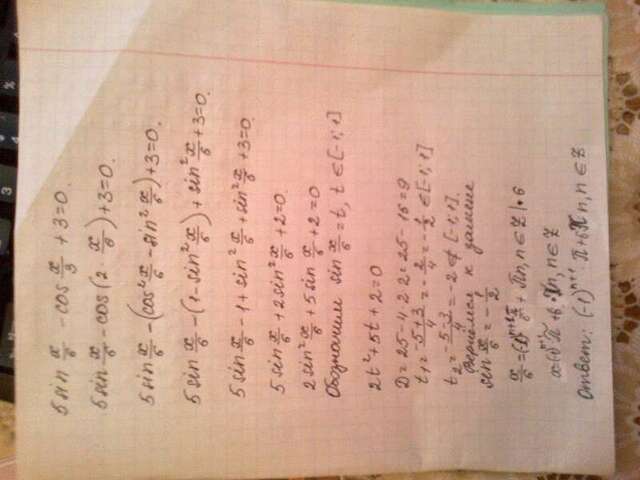 5 sin x/6 - cos x/3 + 3 = 0.
5 sin x/6 - cos(2 x/6) + 3 = 0.
5 sin x/6 - (cos² x/6 - sin² x/6) + 3 = 0.
5 sin x/6 - (1 - sin² x/6) + sin² x/6 + 3 = 0.
5 sin x/6 - 1 + sin² x/6 + sin² x/6 + 3 = 0.
5 sin x/6 + 2 sin² x/6 + 2 = 0.
2 sin² x/6 + 5 sin x/6 + 2 = 0
Обозначим sin x/6 = t, t ∈ [-1; 1]
2t² + 5t + 2 = 0
D = 25 - 4·2·2 = 25 - 16 = 9
t₁ = (-5+3)/4 = -2/4 = -1/2 ∈ [-1; 1]
t₂ = (-5-3)/4 = -2 ∉ [-1; 1].
Вернёмся к замене
sin x/6 = -1/2
x/6 = (-1)ⁿ⁺¹ π/6 + πn, n ∈ Z | · 6
x = (-1)ⁿ⁺¹ π + 6πn, n ∈ Z
Ответ: (-1)ⁿ⁺¹ · π + 6πn, n ∈ Z